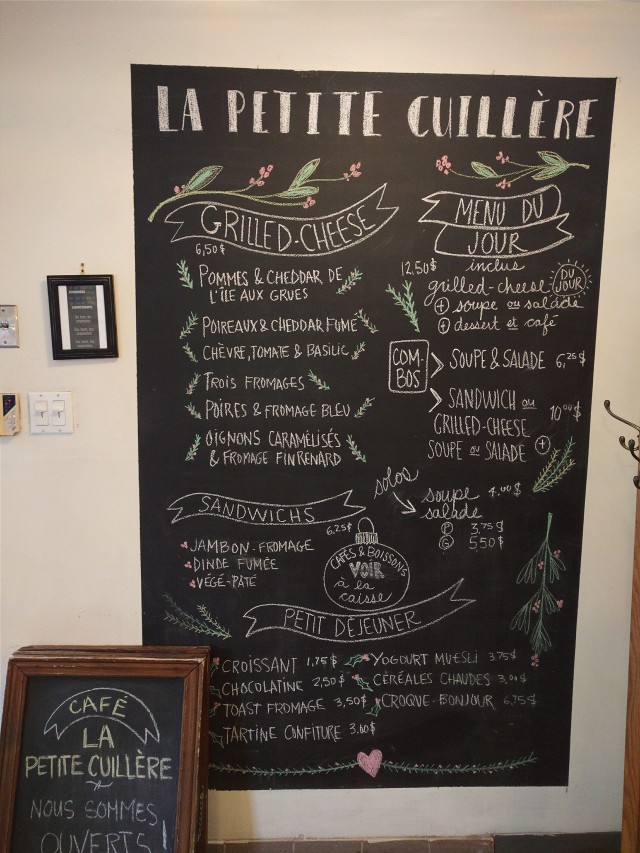 LA PETITE CUILLÈRE
GRILLED-CHEESE
6,50$
POMMES & CHEDDAR DE
L'ÎLE AUX GRUES
POIREAUX & CHEDDAR FUMÉ
CHÈVRE, TOMATE & BASILIC
TROIS FROMAGES
POIRES & FROMAGE BLEU
OIGNONS CARAMÉLISÉS
& FROMAGE FIN RENARD
SANDWICHS
6,25$
JAMBON-FROMAGE
DINDE FUMÉE
VÉGÉ-PÂTÉ
MENU DU
JOUR
12,50$ inclus
grilled-cheese DU JOUR
+ soupe ou salade
+ dessert et café
COM-
BOS
SOUPE & SALADE 6,25$
SANDWICH ou 10,00$
GRILLED-CHEESE
SOUPE ou SALADE +
solos
soupe 4,00$
salade
P 3,75$
G 5,50$
CAFÉS & BOISSONS
VOIR
à la
caisse
PETIT DÉJEUNER
CROISSANT 1,75$
CHOCOLATINE 2,50$
TOAST FROMAGE 3,50$
TARTINE CONFITURE 3.00$
YOGOURT MUESLI 3,75$
CÉRÉALES CHAUDES 3,00$
CROQUE-BONJOUR 6,75$
CAFÉ
LA
PETITE CUILLÈRE
NOUS SOMMES
OUVERTS!